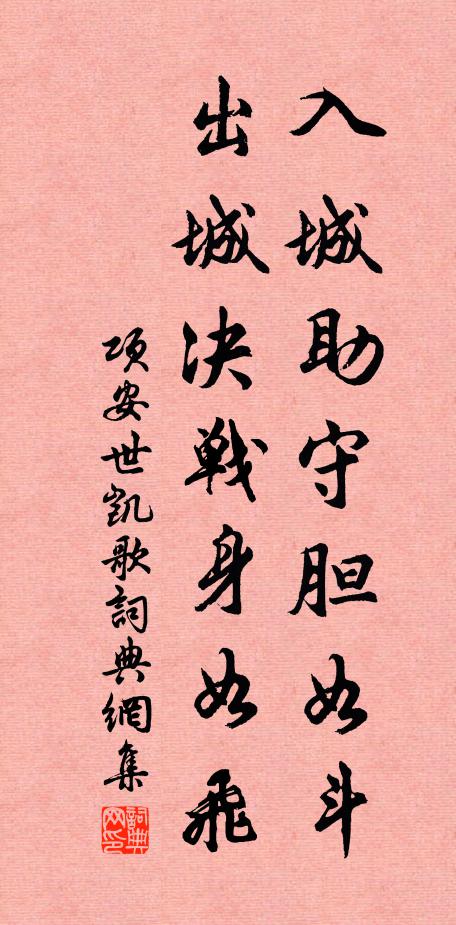 入城助守胆如斗
出城决戦身如飛
项安世凯歌詞典網集
詞典网印